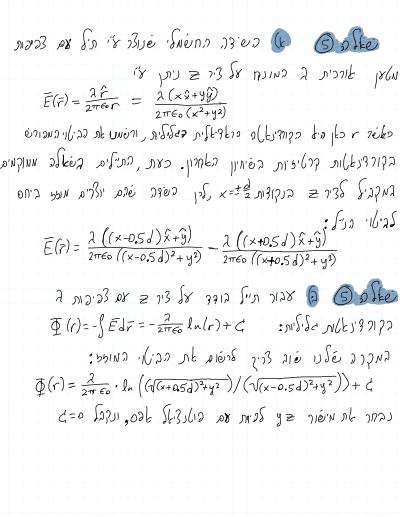 שאלה 5 א השדה החשמלי שנוצר ע"י תיל עם צפיפות
מטען אורכית λ המונח על ציר z ניתן ע"י
E̅(r̅) = λr̂/2πε₀r = λ(xx̂+yŷ)/2πε₀(x²+y²)
כאשר r כאן היא הקורדינאטה הראדיאלית הגלילית, ורשמנו את הביטוי המפורש
בקורדינאטות קרטזיות בשוויון האחרון. כעת, התילים בשאלה ממוקמים
במקביל לציר z בנקודות x=±d/2, ולכן השדה שהם יוצרים מוזז ביחס
לביטוי הנ"ל:
E̅(r̅) = λ((x-0.5d)x̂+yŷ)/2πε₀((x-0.5d)²+y²) - λ((x+0.5d)x̂+yŷ)/2πε₀((x+0.5d)²+y²)
שאלה 5 ב עבור תייל בודד על ציר z עם צפיפות λ
בקורדינאטות גליליות: Φ(r) = -∫E̅dr̅ = -λ/2πε₀ ln(r) + C
במקרה שלנו שוב צריך לרשום את הביטוי המוזז:
Φ(r) = λ/2πε₀ · ln((√(x+0.5d)²+y²)/(√(x-0.5d)²+y²)) + C
נבחר את מישור yz להיות עם פוטנציאל אפס, ונקבל C=0